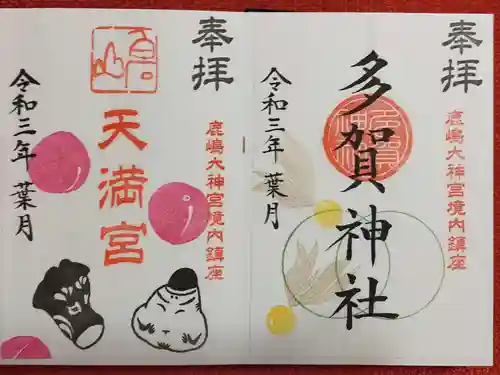 奉拝
鹿嶋大神宮境内鎮座
多賀神社
令和三年 葉月
奉拝
鹿嶋大神宮境内鎮座
天満宮
令和三年 葉月